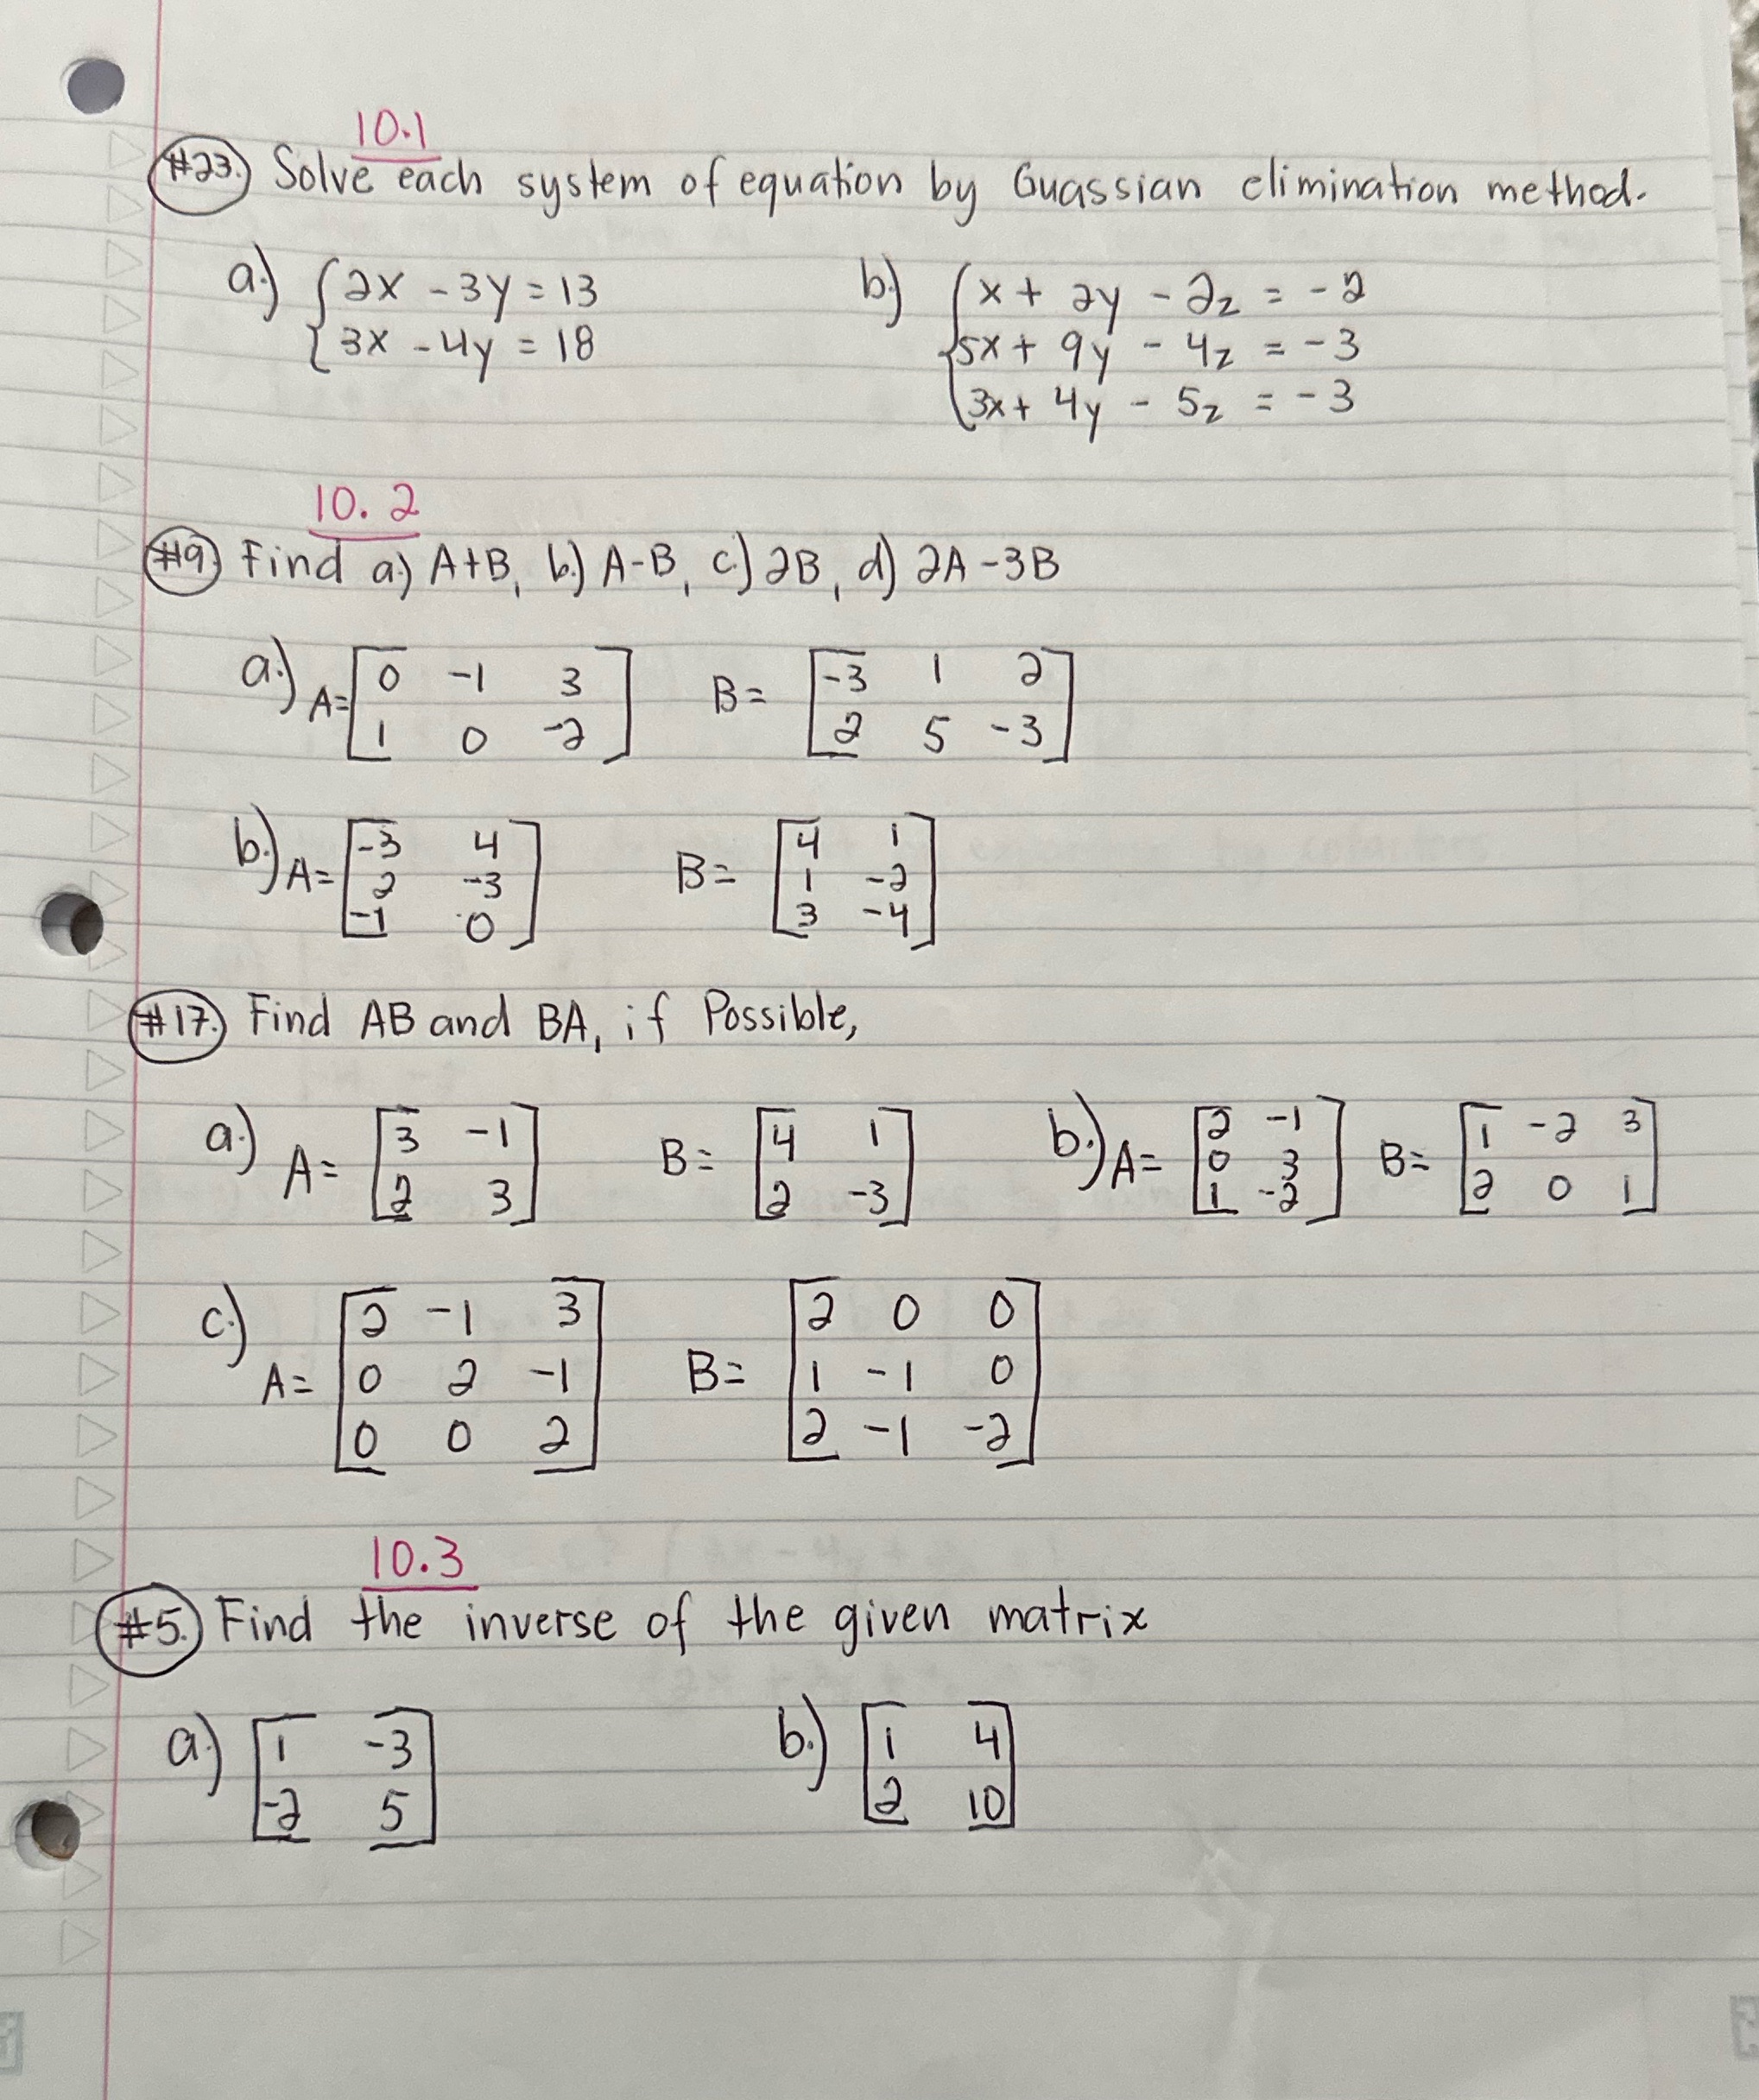 10.1
#23. Solve each system of equation by Guassian elimination method.
a.) { 2x - 3y = 13 b.) { x + 2y - 2z = -2
3x - 4y = 18 5x + 9y - 4z = -3
3x + 4y - 5z = -3
10.2
#9. Find a.) A+B, b.) A-B, c.) 2B, d) 2A-3B
a.) A= [ 0 -1 3 ] B= [ -3 1 2 ]
[ 1 0 -2 ] [ 2 5 -3 ]
b.) A= [ -3 4 ] B= [ 4 1 ]
[ 2 -3 ] [ 1 -2 ]
[ -1 0 ] [ 3 -4 ]
#17. Find AB and BA, if Possible,
a.) A= [ 3 -1 ] B= [ 4 1 ] b.) A= [ 2 -1 ] B= [ 1 -2 3 ]
[ 2 3 ] [ 2 -3 ] [ 0 3 ] [ 2 0 1 ]
[ 1 -2 ]
c.) A= [ 2 -1 3 ] B= [ 2 0 0 ]
[ 0 2 -1 ] [ 1 -1 0 ]
[ 0 0 2 ] [ 2 -1 -2 ]
10.3
#5. Find the inverse of the given matrix
a.) [ 1 -3 ] b.) [ 1 4 ]
[ -2 5 ] [ 2 10 ]